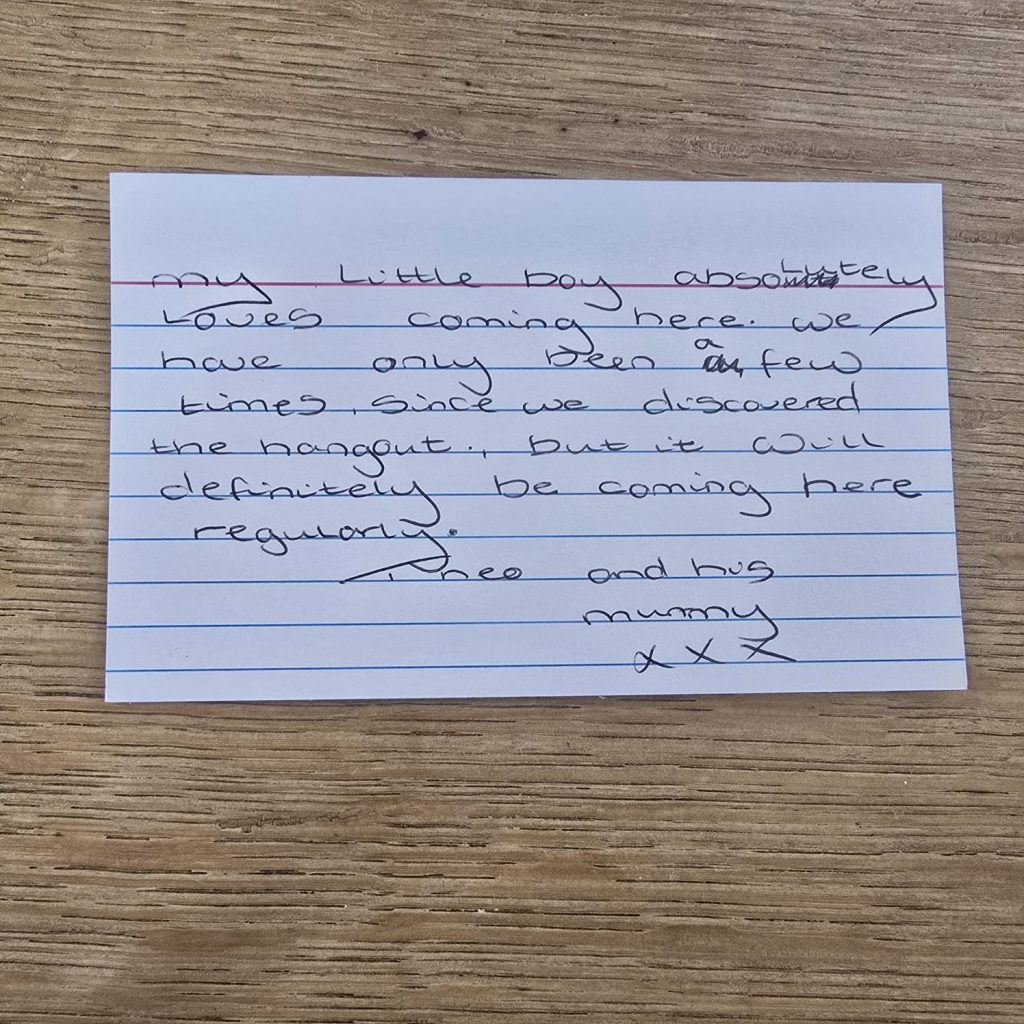 my Little boy absolutely
Loves coming here. we
have only been a few
times, since we discovered
the hangout., but it will
definitely be coming here
regularly.
Theo and his
mummy
x x x